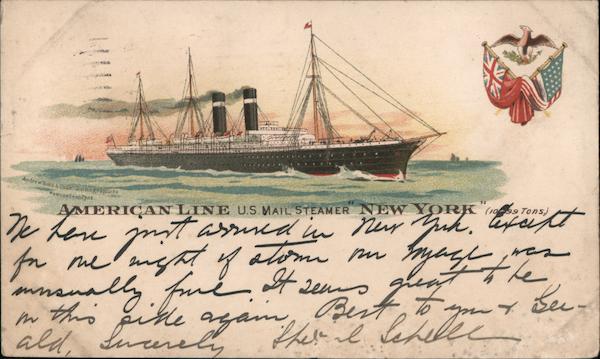 AMERICAN LINE U.S. MAIL STEAMER "NEW YORK" (10,499 Tons)
We have just arrived in New York. Except
for one night of storm our voyage was
unusually fine It seems great to be
on this side again, Best to you & Ger-
ald, Sincerely Schell